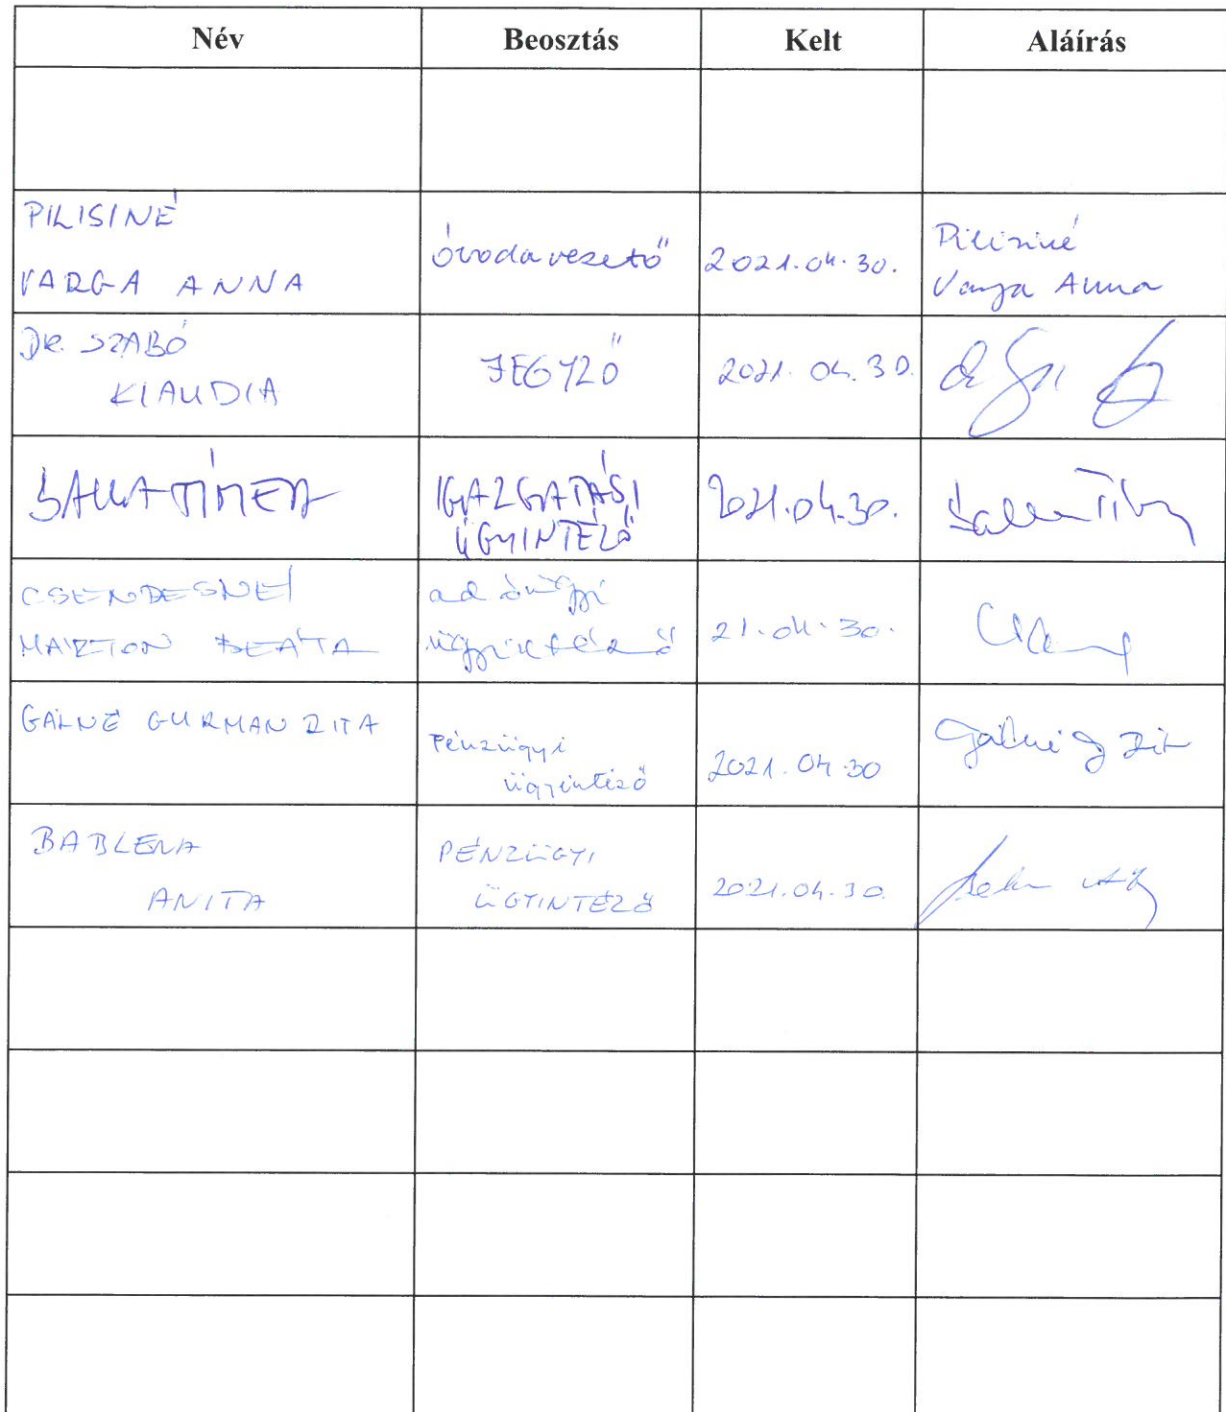 Név Beosztás Kelt Aláírás
PILISINÉ
VARGA ANNA
óvodavezető 2021.04.30.
Pilisiné
Varga Anna
DR. SZABÓ
KLAUDIA
JEGYZŐ 2021. 04. 30.
BALLA TÍMEA
IGAZGATÁSI
ÜGYINTÉZŐ
2021.04.30.
CSENDESNÉ
MARTON BEÁTA
adóügyi
21.04.30.
GÁLNÉ GURMAN RITA
Pénzügyi
ügyintéző
2021.04.30
Gálné G Rita
BABLENA
ANITA
PÉNZÜGYI
ÜGYINTÉZŐ
2021.04.30.